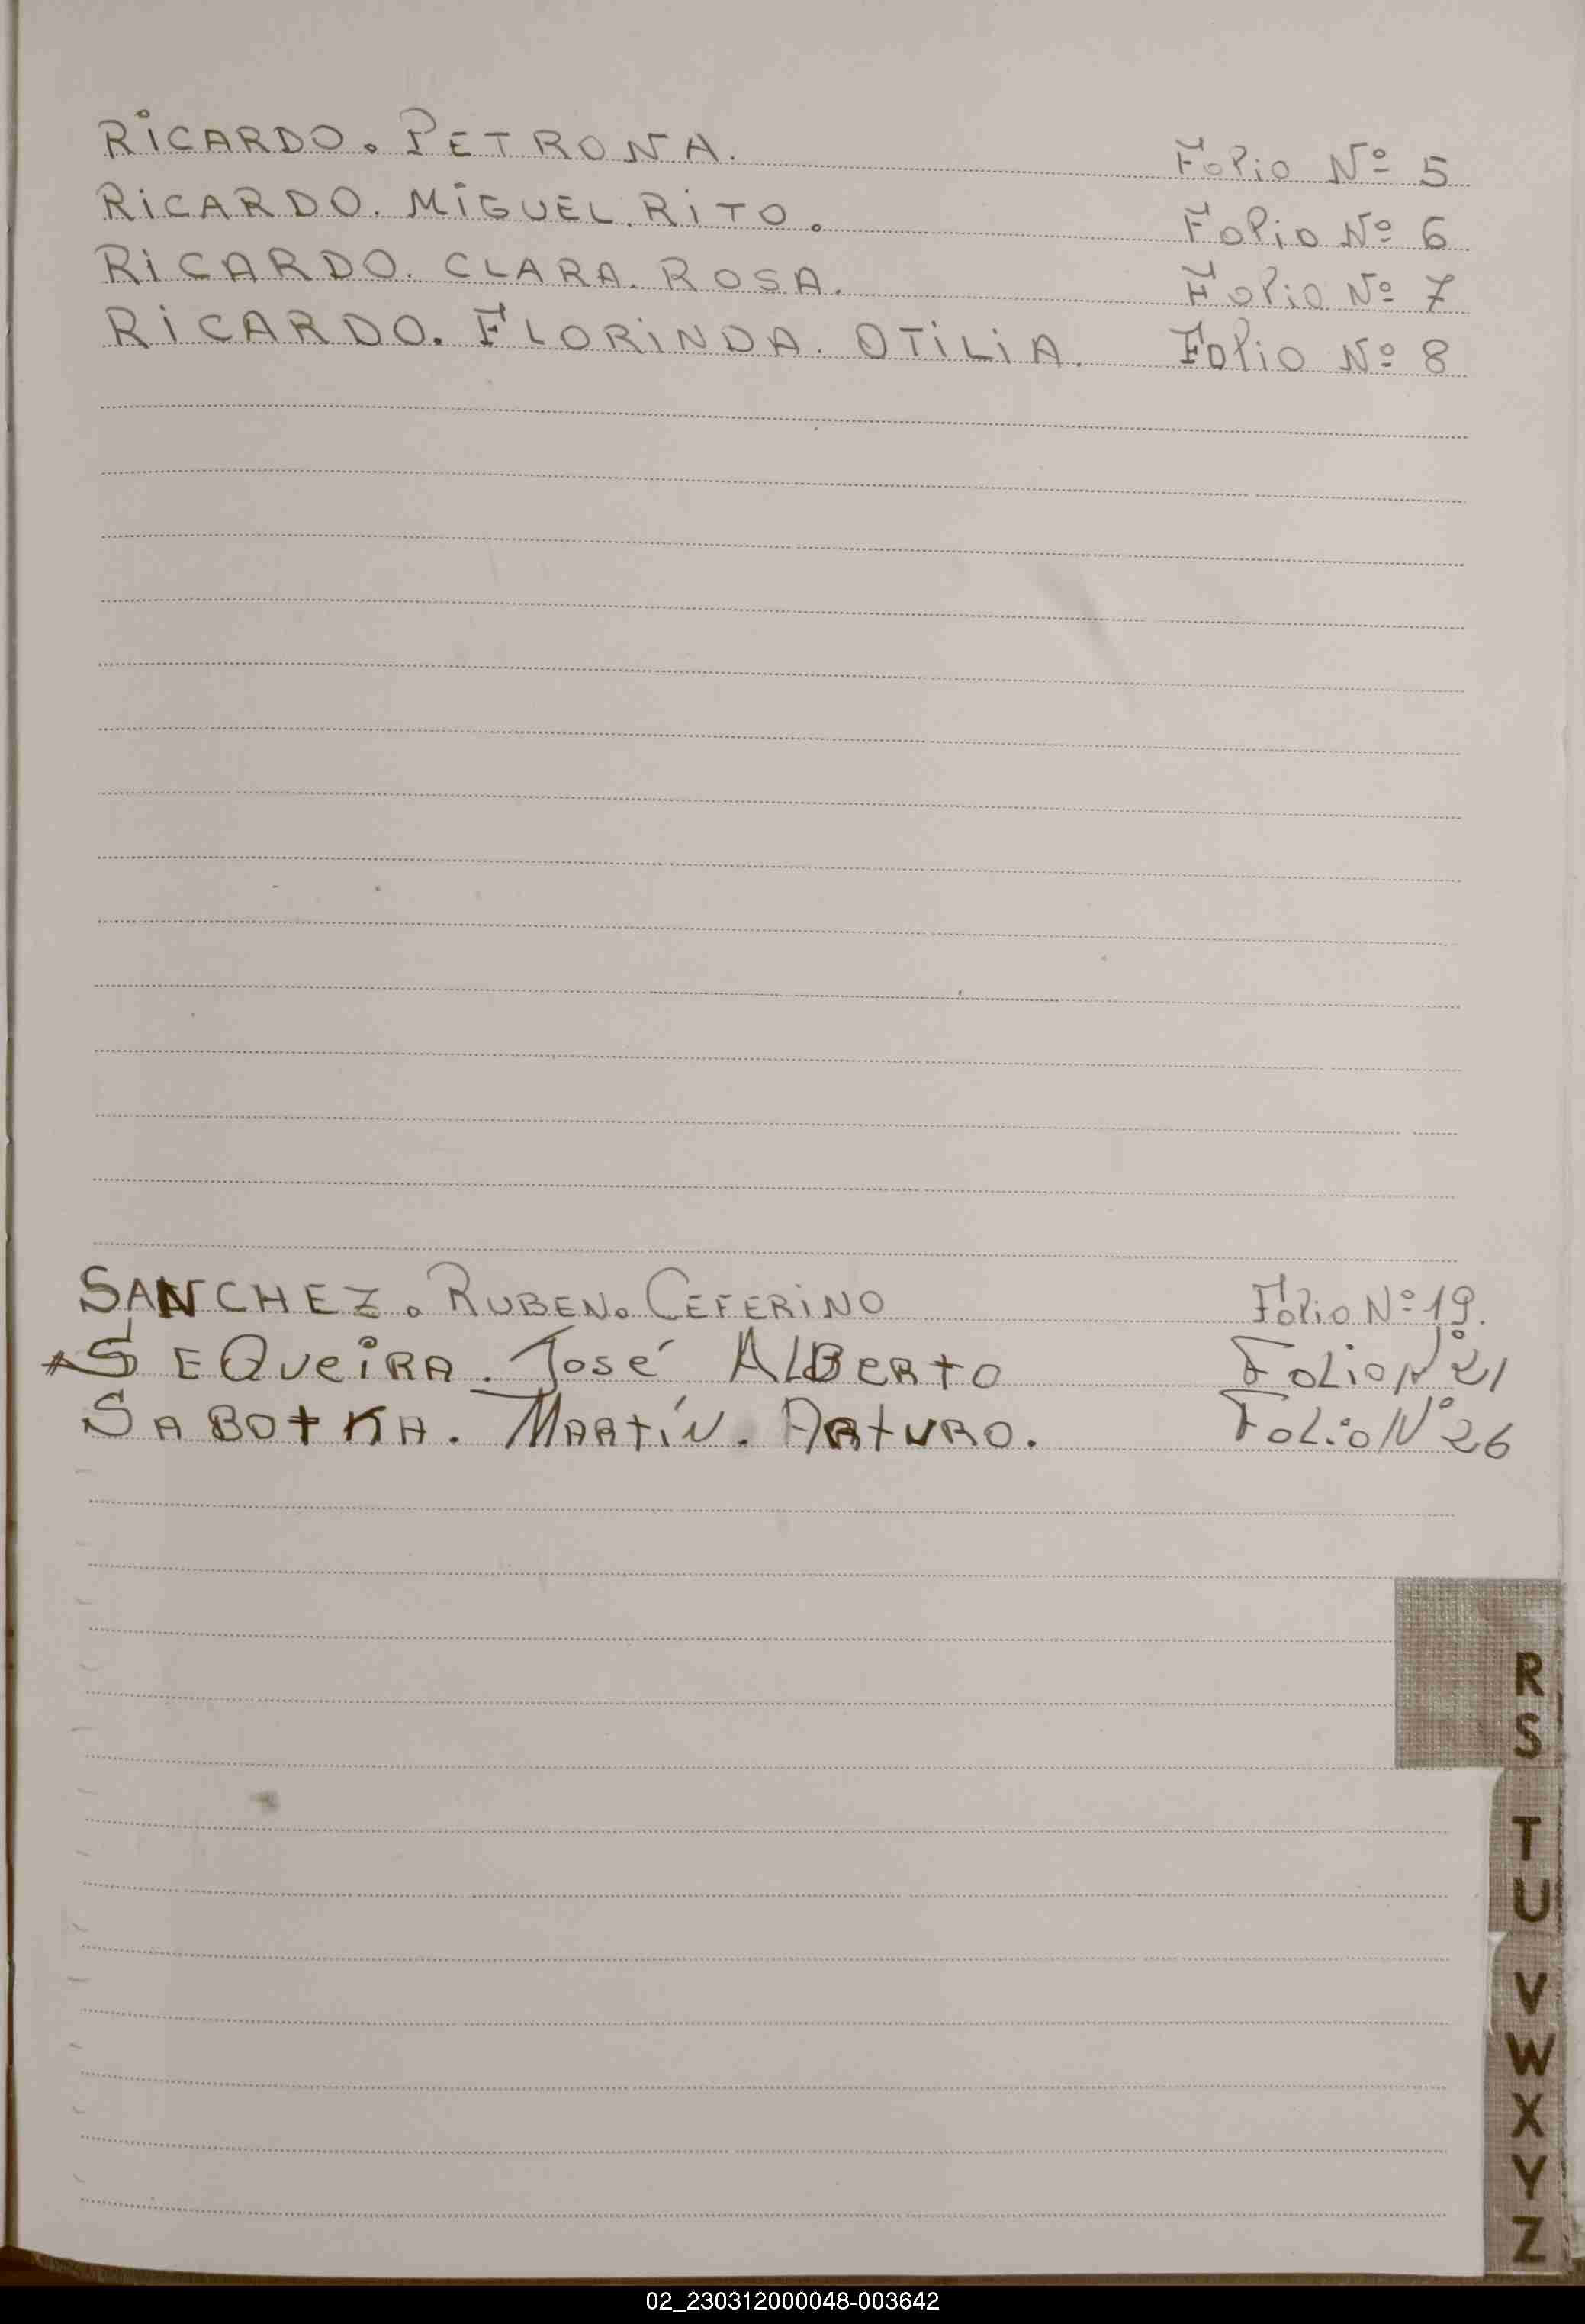 RICARDO. PETRONA. Folio Nº 5
RICARDO. MIGUEL. RITO. Folio Nº 6
RICARDO. CLARA. ROSA. Folio Nº 7
RICARDO. FLORINDA. OTILIA. Folio Nº 8
SANCHEZ. RUBEN. CEFERINO Folio Nº 19.
SEQUEIRA. José ALBERTO Folio Nº 21
SABOTKA. MARTÍN. ARTURO. Folio Nº 26
R
S
T
U
V
W
X
Y
Z
02_230312000048-003642